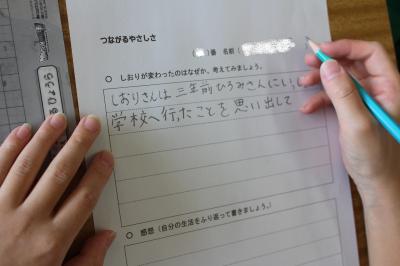 つながるやさしさ
番 名前（
○ しおりが変わったのはなぜか、考えてみましょう。
しおりさんは三年前ひろみさんにいっし
学校へ行ったことを思い出して
○ 感想（自分の生活をふり返って書きましょう。）
ひょうら